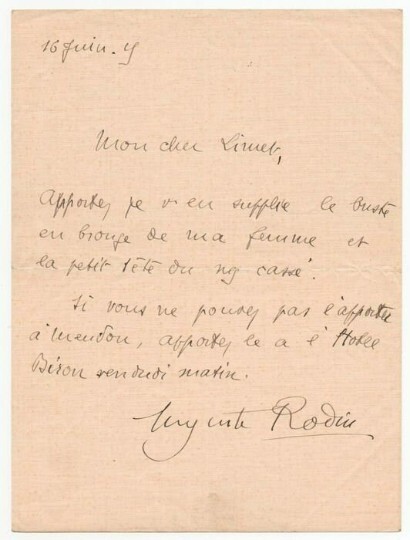 16 Juin. 15
Mon cher Limet,
Apportez je v. en supplie le buste
en bronze de ma femme et
la petit tête du nez cassé.
Si vous ne pouvez pas l'apporter
à Meudon, apportez le a l'Hotel
Biron vendredi matin.
Auguste Rodin